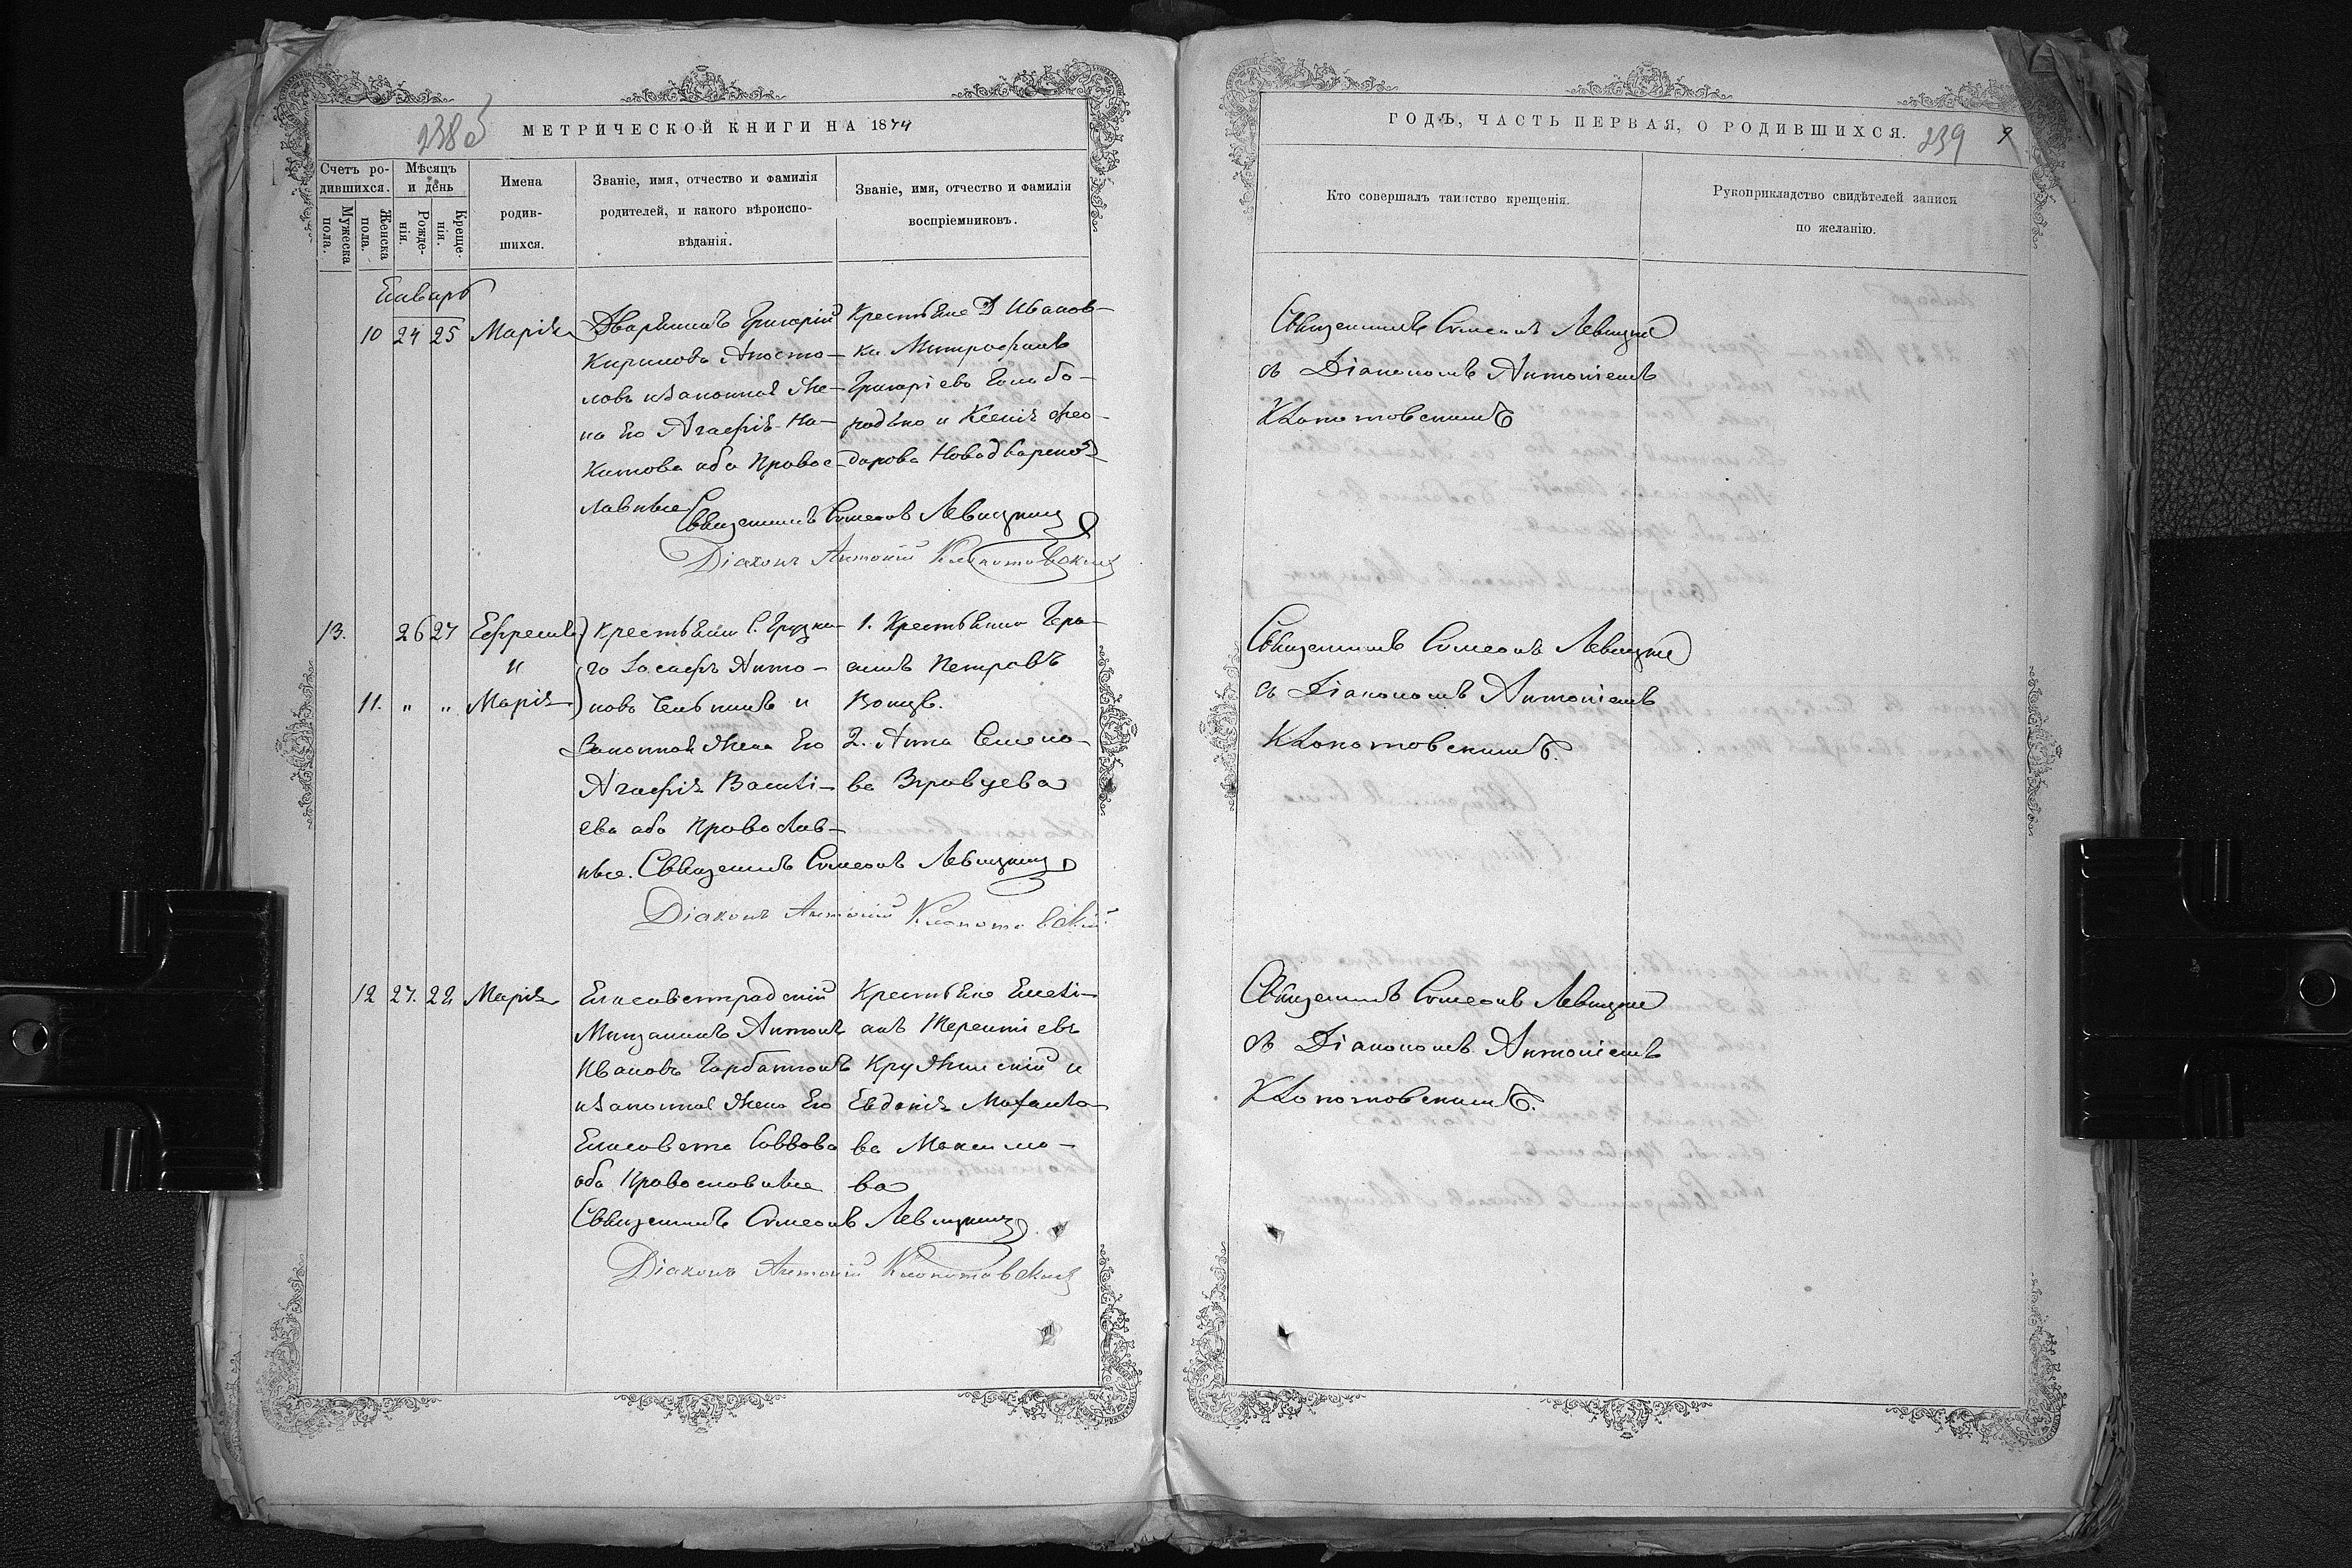 238 об
МЕТРИЧЕСКОЙ КНИГИ НА 1874
Счетъ ро-
дившихся.
Мужеска
пола.
Женска
пола.
Мѣсяцъ
и день
Рожде-
нія.
Креще-
нія.
Имена
родив-
шихся.
Званіе, имя, отчество и фамилія
родителей, и какого вѣроиспо-
вѣданія.
Званіе, имя, отчество и фамилія
воспріемниковъ.
Январь
10 24 25 Марія
Дворянинъ Григорій
Кириловъ Апосто-
ловъ и законная Же-
на Его Агафія Ни-
китова оба Правос-
лавные
Крестьяне Д Иванов-
ки Митрофанъ
Григоріевъ Голобо-
родько и Ксенія Фео-
дорова
Священникъ Симеонъ Левицкий
Діаконъ Антоній Клопотовскій
13. 26 27 Ефремъ
и
11. " " Марія
Крестьянин С. Грузка-
го Іосифъ Анто-
новъ и
Законная Жена Его
Агафія Василі-
ева оба Православ-
ные.
1. Крестьянин Гера-
симъ Петровъ
2. Анна Семено-
ва
Священникъ Симеонъ Левицкий
Діаконъ Антоній Клопотовскій
12 27. 28 Марія
Елисаветрадскій
Мещанинъ Антонъ
Ивановъ Горбатюкъ
и законная Жена Его
Елисавета Саввова
оба Православные
Крестьяне Емелі-
анъ Терентіевъ
Кружилскій и
Евдокія Михаило-
ва Максимо-
ва
Священникъ Симеонъ Левицкий
Діаконъ Антоній Клопотовскій
ГОДЪ, ЧАСТЬ ПЕРВАЯ, О РОДИВШИХСЯ.
239
Кто совершалъ таинство крещенія.
Рукоприкладство свидѣтелей записи
по желанію.
Священникъ Симеонъ Левицкий
съ Діакономъ Антоніемъ
Клопотовскимъ
Священникъ Симеонъ Левицкий
съ Діакономъ Антоніемъ
Клопотовскимъ.
Священникъ Симеонъ Левицкий
съ Діакономъ Антоніемъ
Клопотовскимъ.